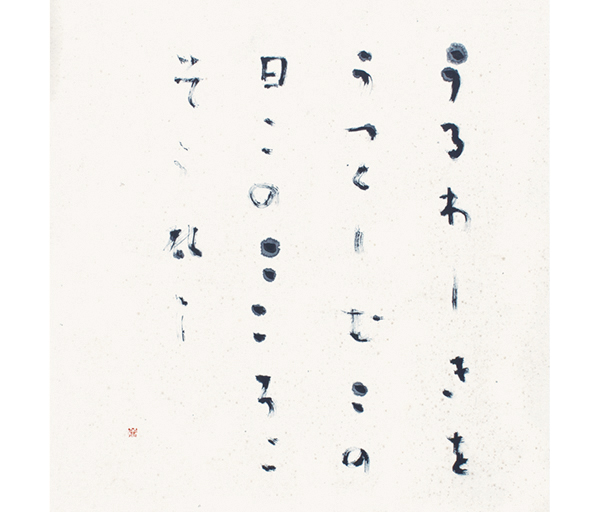 うるわしきを
うつくしむこの
日このこころこ
そ